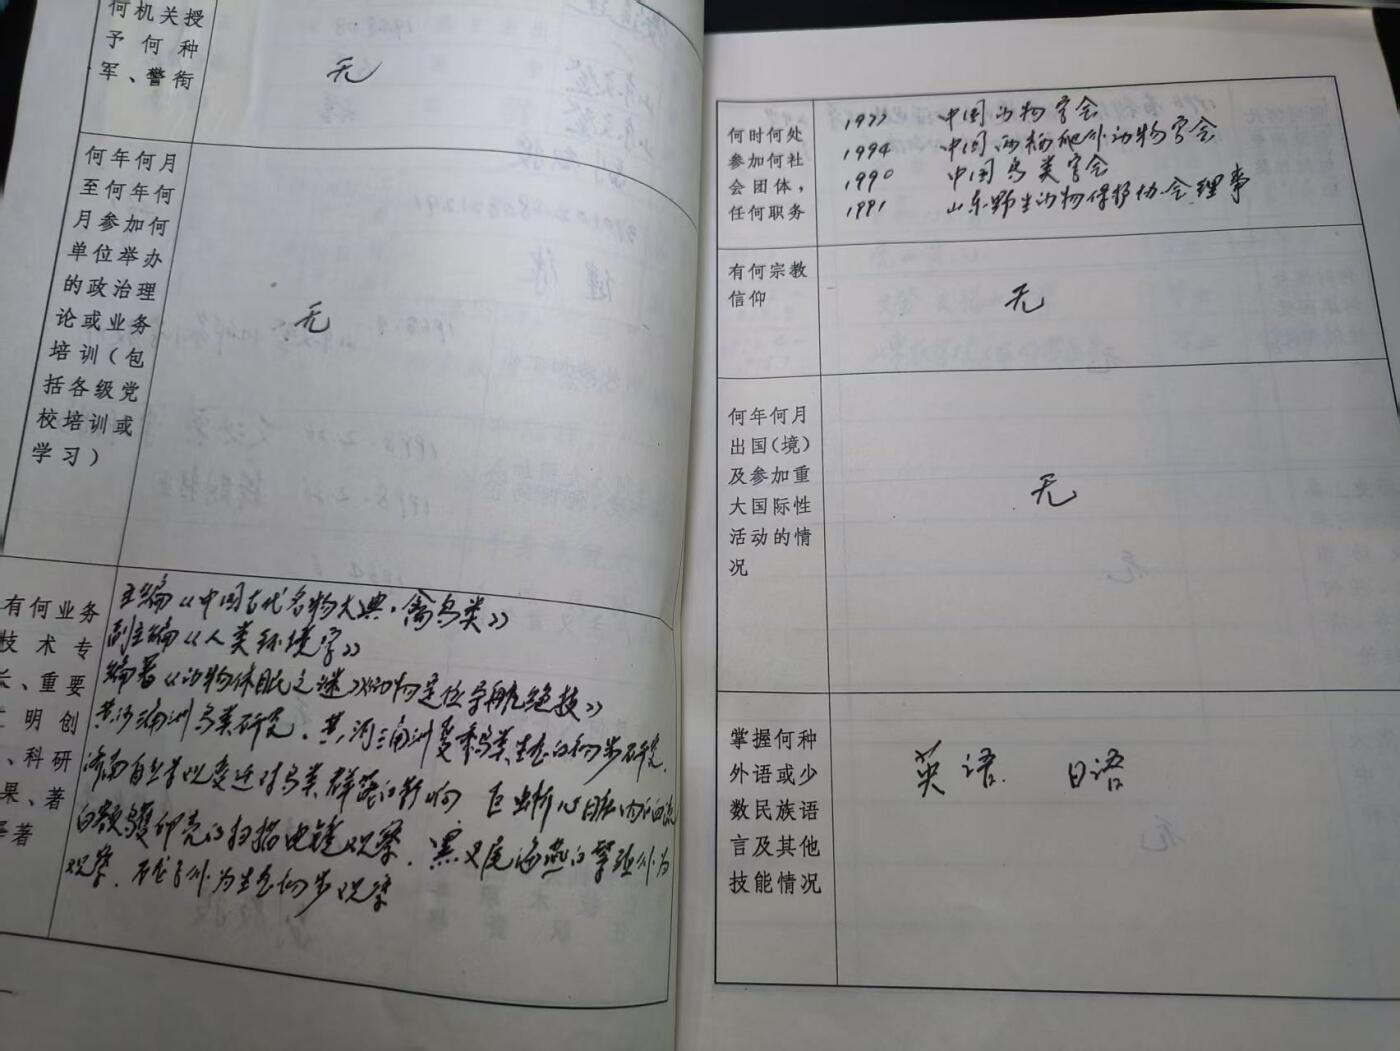 何机关授
予何种
军、警衔
无
何年何月
至何年何
月参加何
单位举办
的政治理
论或业务
培训（包
括各级党
校培训或
学习）
无
有何业务
技术专
、重要
明创
、科研
果、著
著
主编《中国古代名物大典·禽鸟类》
副主编《人类环境学》
编著《动物休眠之谜》《动物定位导航绝技》
黄河三角洲鸟类研究、黄河三角洲夏季鸟类生态的初步研究、
济南自然景观变迁对鸟类群落的影响 巨蜥心脏内的血流
白额鹱卵壳的扫描电镜观察、黑叉尾海燕的繁殖行为
观察、行为生态初步观察
何时何处
参加何社
会团体，
任何职务
1977 中国动物学会
1994 中国两栖爬行动物学会
1990 中国鸟类学会
1991 山东野生动物保护协会理事
有何宗教
信仰
无
何年何月
出国（境）
及参加重
大国际性
活动的情
况
无
掌握何种
外语或少
数民族语
言及其他
技能情况
英语、 日语